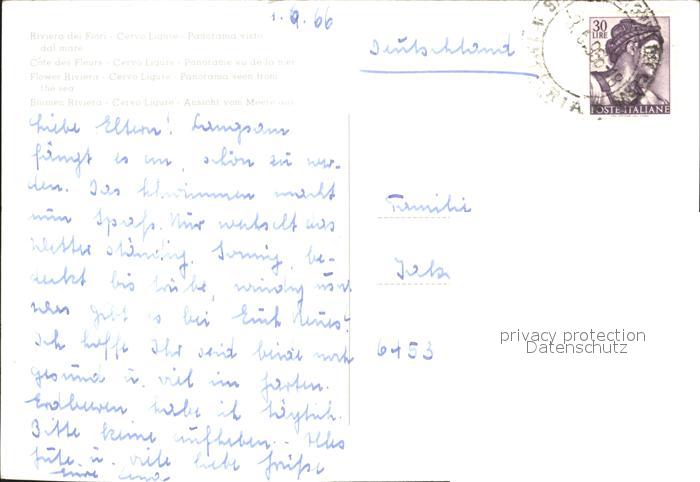 1.9.66
Riviera dei Fiori - Cervo Ligure - Panorama visto
dal mare
Côte des Fleurs - Cervo Ligure - Panorama vu de la mer
Flower Riviera - Cervo Ligure - Panorama seen from
the sea
Blumen Riviera - Cervo Ligure - Aussicht vom Meere aus
Deutschland
30
LIRE
POSTE ITALIANE
Liebe Eltern! Langsam
fängt es an, schön zu wer-
den. Das Schwimmen macht
nun Spaß. Nur wechselt das
Wetter ständig. Sonnig, be-
deckt bis trübe, windig usw.
Was gibt es bei Euch Neues?
Ich hoffe Ihr seid beide noch
gesund u. viel im Garten.
Erdbeeren habe ich täglich.
Bitte keine aufheben. Alles
Gute u. viele liebe Grüße
Eure
Familie
6453
privacy protection
Datenschutz